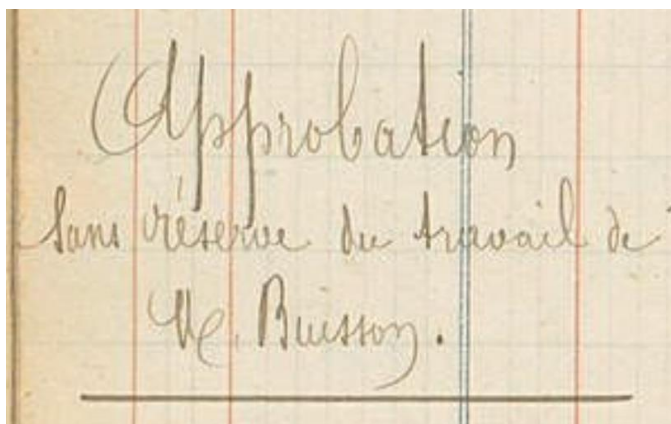 Approbation
sans réserve du travail de
M. Buisson.